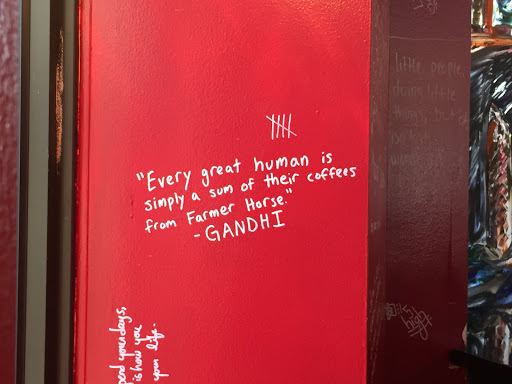 "Every great human is
simply a sum of their coffees
from Farmer Horse."
- GANDHI
spend your days,
is how you
your life.
little people
doing little
things, that